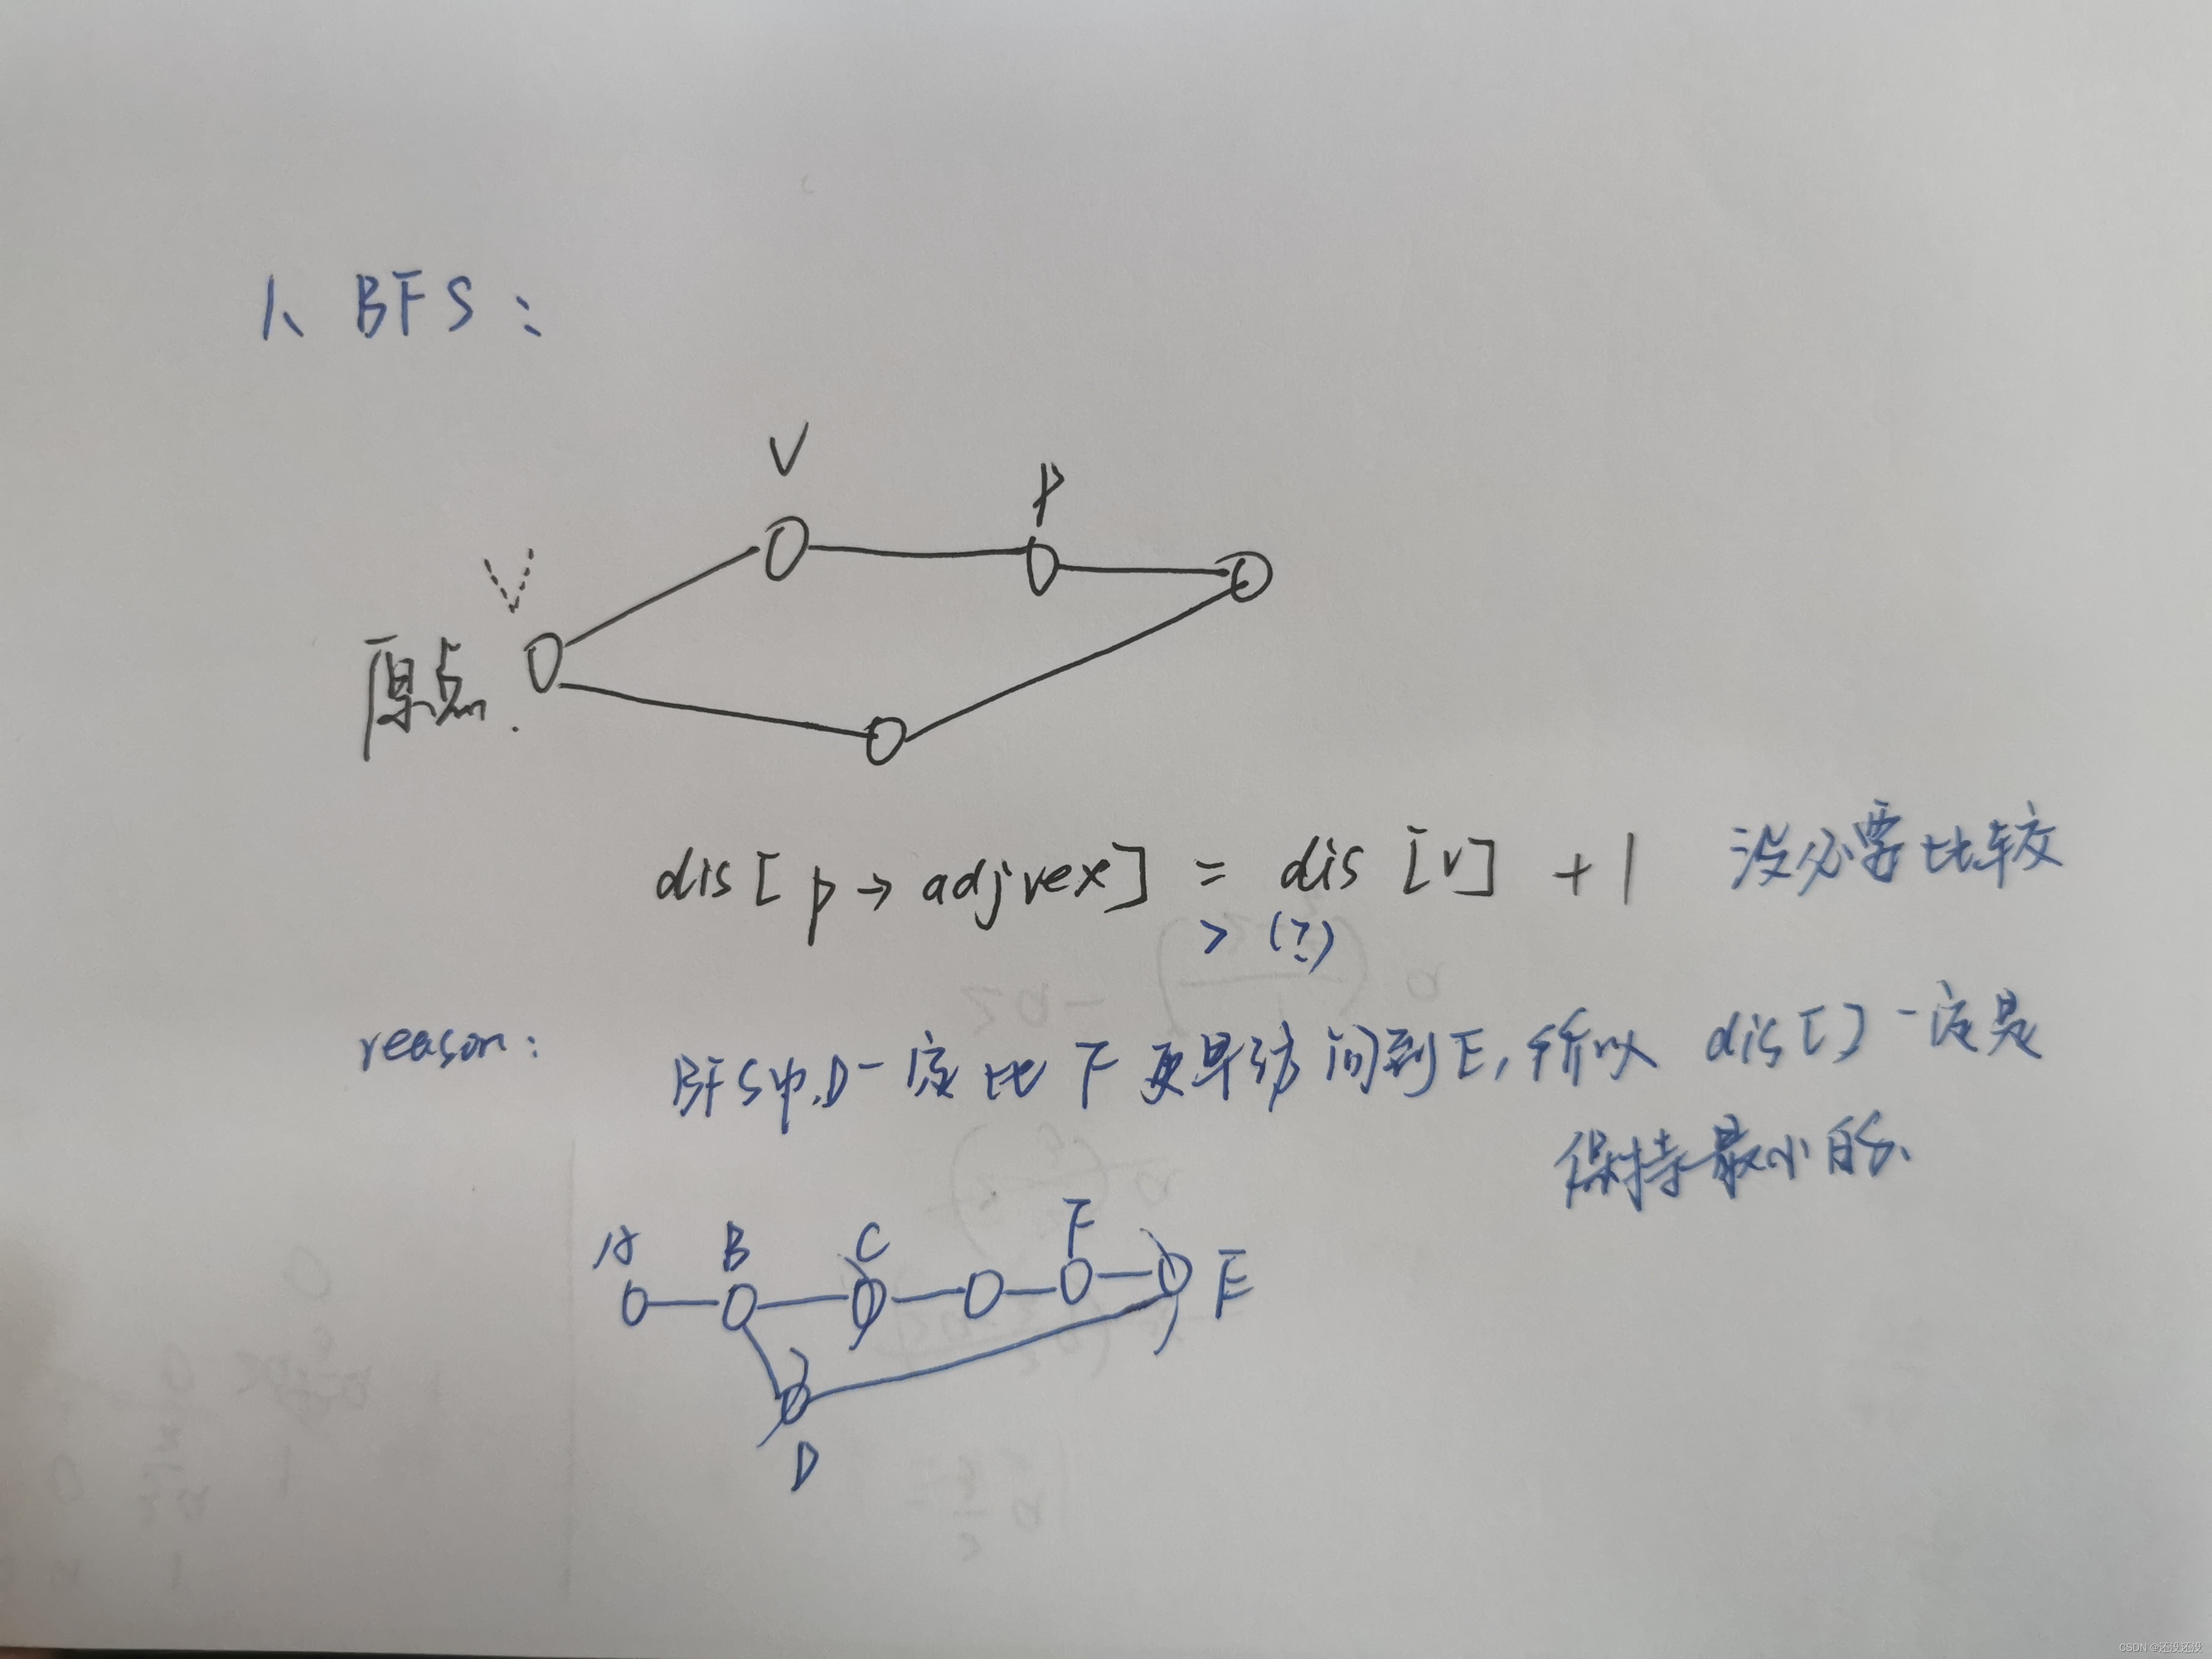 1、BFS：
V
p
V
原点.
dis[p→adjvex] = dis[v] +1 没必要比较
> (?)
reason:
BFS中,D一定比F更早访问到E,所以dis[]一定是
保持最小的、
A B C F E
D
CSDN @还没还没